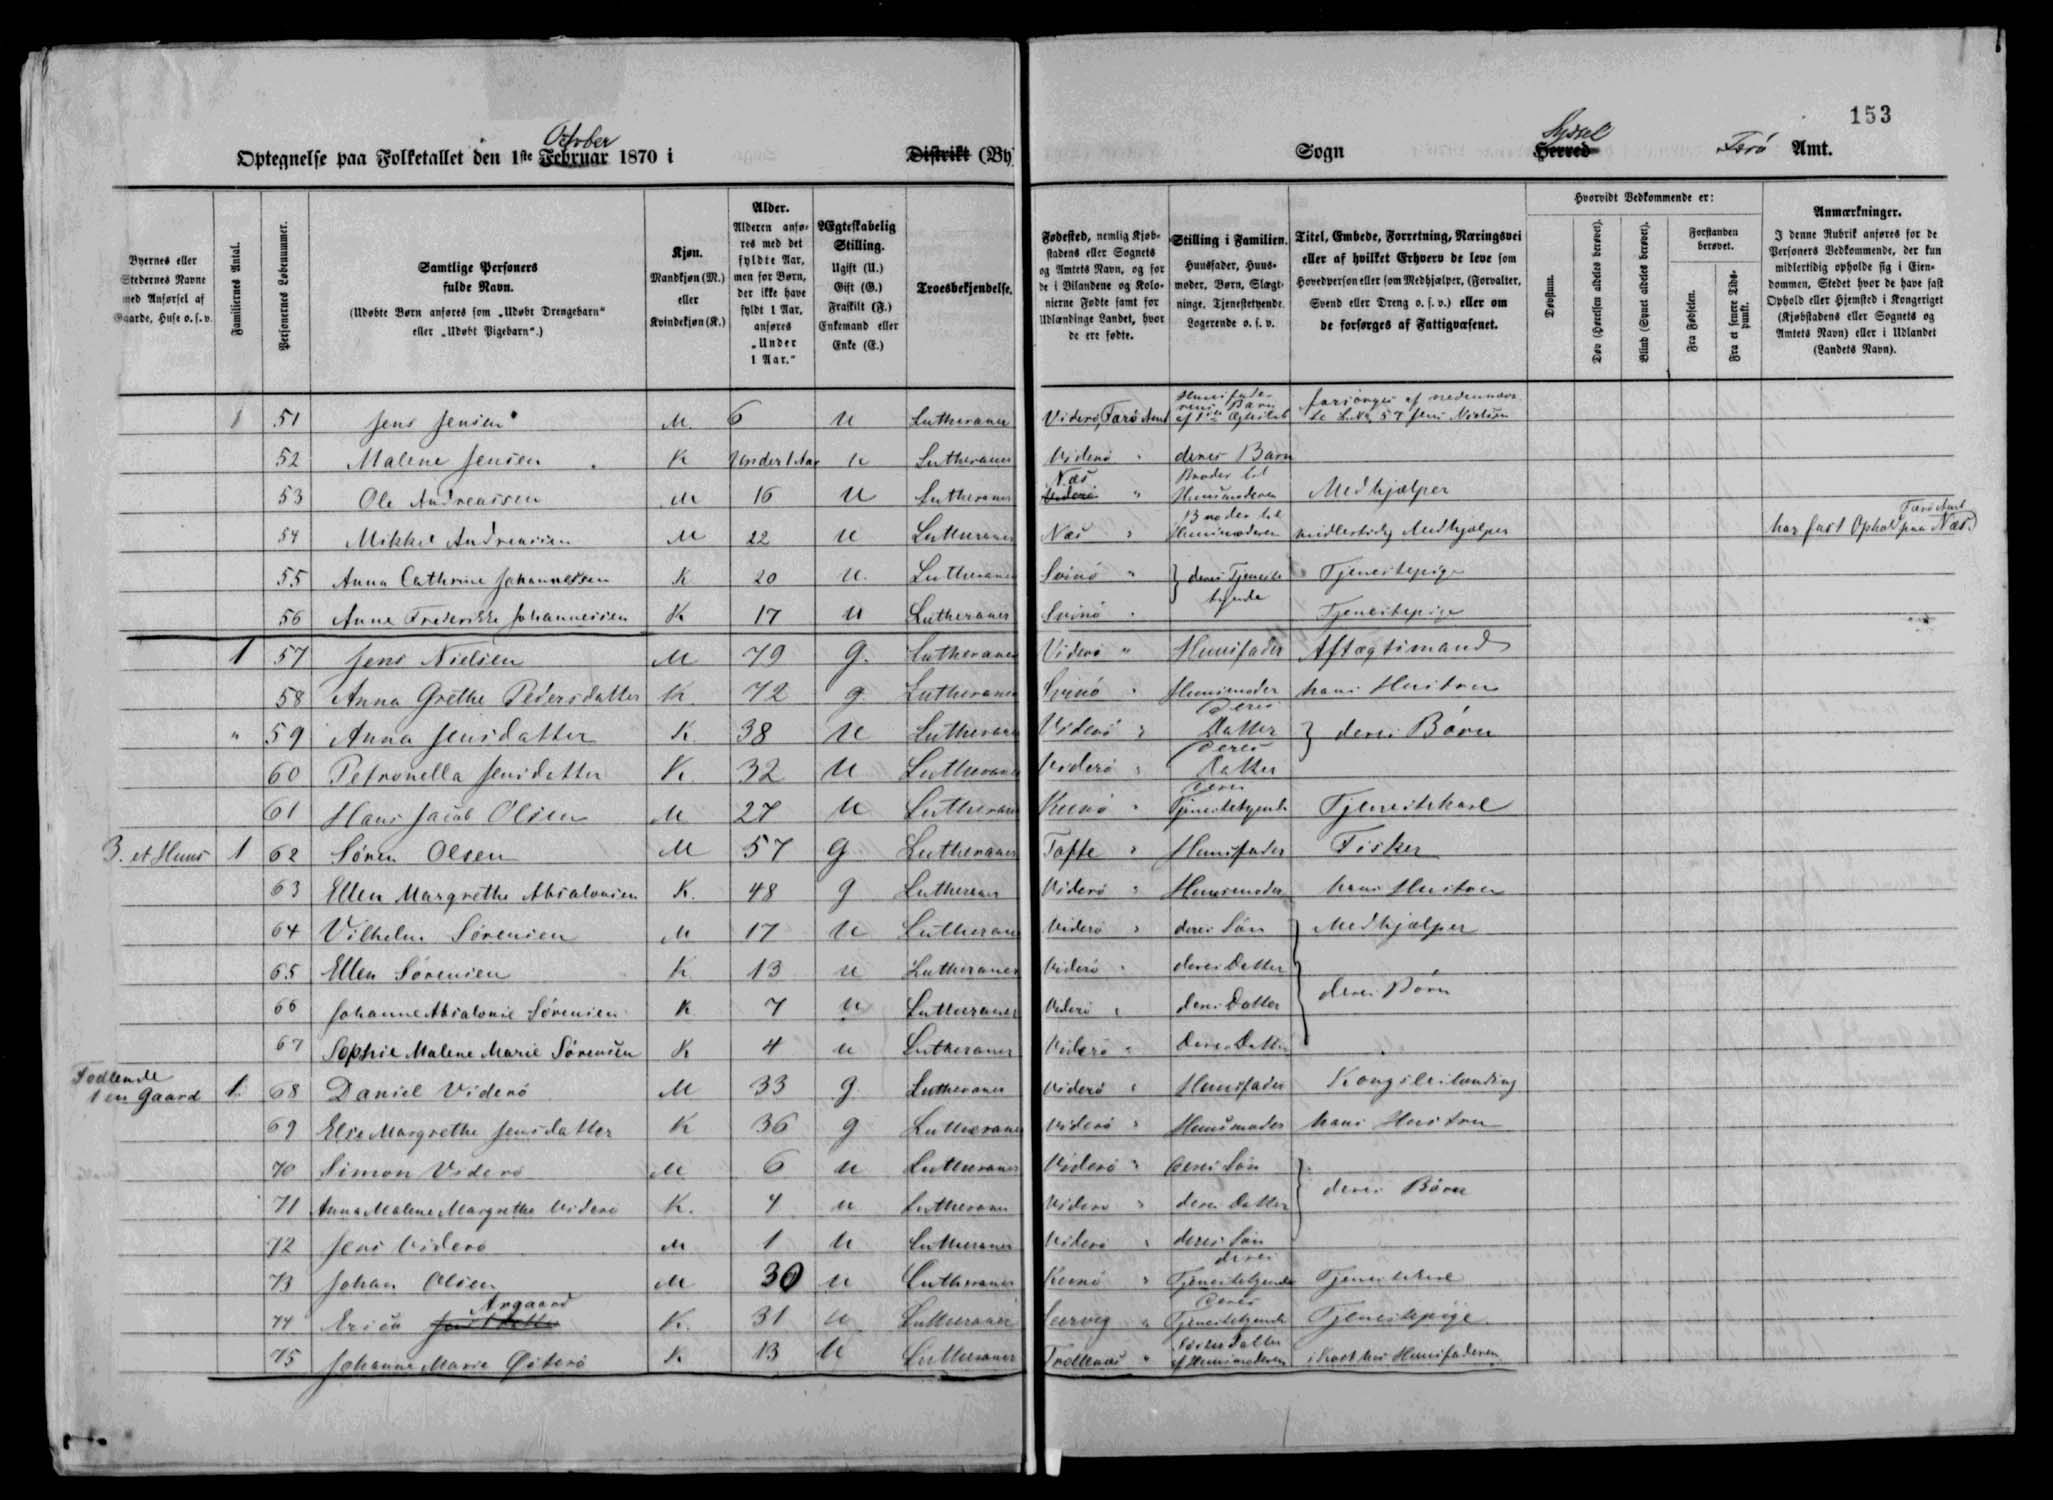 153
Optegnelse paa Folketallet den 1ste Februar October 1870 i Distrikt (By) Sogn Herred Syssel Færø Amt.
Byernes eller Stedernes Navne med Anførsel af Gaarde, Huse o. s. v.
Familiernes Antal.
Personernes Løbenummer.
Samtlige Personers fulde Navn.
(Udøbte Børn anføres som „Udøbt Drengebarn“ eller „Udøbt Pigebarn“.)
Kjøn.
Mandkjøn (M.) eller Kvindekjøn (K.)
Alder.
Alderen anføres med det fyldte Aar, men for Børn, der ikke have fyldt 1 Aar, anføres „Under 1 Aar.“
Ægteskabelig Stilling.
Ugift (U.)
Gift (G.)
Fraskilt (F.)
Enkemand eller Enke (E.)
Troesbekjendelse.
Fødested, nemlig Kjøbstadens eller Sognets og Amtets Navn, og for de i Bilandene og Kolonierne Fødte samt for Udlændinge Landet, hvor de ere fødte.
Stilling i Familien.
Huusfader, Huusmoder, Børn, Slægtninge, Tjenestetyende, Logerende o. s. v.
Titel, Embede, Forretning, Næringsvei eller af hvilket Erhverv de leve som Hovedperson eller som Medhjælper, (Forvalter, Svend eller Dreng o. s. v.) eller om de forsørges af Fattigvæsenet.
Hvorvidt Vedkommende er:
Døvstum.
Døv (Hørelsen aldeles berøvet).
Blind (Synet aldeles berøvet).
Forstanden berøvet.
Fra Fødselen.
Fra et senere Tidspunkt.
Anmærkninger.
I denne Rubrik anføres for de Personers Vedkommende, der kun midlertidig opholde sig i Eiendommen, Stedet hvor de have fast Ophold eller Hjemsted i Kongeriget (Kjøbstadens eller Sognets og Amtets Navn) eller i Udlandet (Landets Navn).
1 51 Jens Jensen M. 6 U Lutheraner Viderø, Færø Amt Huusfaderens Barn af 1ste Ægteskab forsørges af nedennævnte L. No 57 Jens Nielsen
52 Malene Jensen K Under 1 Aar U Lutheraner Viderø " deres Barn
53 Ole Andreassen M 16 U Lutheraner Næs Viderø " Broder til Huusmoderen Medhjælper
54 Mikkel Andreassen M 22 U Lutheraner Næs " Broder til Huusmoderen midlertidig Medhjælper har fast Ophold paa Næs Færø Amt
55 Anna Cathrine Johannessen K 20 U. Lutheraner Svinø " } deres Tjenestetyende Tjenestepige
56 Anne Frederikke Johannessen K 17 U Lutheraner Svinø " Tjenestepige
1 57 Jens Nielsen M 79 g. Lutheraner Viderø " Huusfader Aftægtsmand
58 Anna Grethe Pedersdatter K 72 g. Lutheraner Svinø " Huusmoder hans Hustru
" 59 Anna Jensdatter K. 38 U Lutheraner Viderø " Deres Datter } deres Børn
60 Petronella Jensdatter K. 32 U Lutheraner Viderø " Deres Datter
61 Hans Jacob Olsen M 27 U Lutheraner Kunø " Deres Tjenestetyende Tjenestekarl
3. et Huus 1 62 Søren Olsen M 57 g Lutheraner Tofte " Huusfader Fisker
63 Ellen Margrethe Absalonsen K. 48 g Lutheraner Viderø " Huusmoder hans Hustru
64 Vilhelm Sørensen M 17 U Lutheraner Viderø " deres Søn Medhjælper
65 Ellen Sørensen K 13 U Lutheraner Viderø " deres Datter
66 Johanne Absalonie Sørensen K 7 U Lutheraner Viderø " deres Datter deres Børn
67 Sophie Malene Marie Sørensen K 4 U Lutheraner Viderø " Deres Datter
1 en Gaard 1. 68 Daniel Viderø M 33 g. Lutheraner Viderø " Huusfader Kongsleilænding
69 Else Margrethe Jensdatter K 36 g Lutheraner Viderø " Huusmoder hans Hustru
70 Simon Viderø M 6 U Lutheraner Viderø " deres Søn
71 Anna Malene Margrethe Viderø K. 4 U Lutheraner Viderø " deres Datter deres Børn
72 Jens Viderø M 1 U Lutheraner Viderø " deres Søn
73 Johan Olsen M 30 U Lutheraner Kunø " deres Tjenestetyende Tjenestekarl
74 Argaard K. 31 U Lutheraner " Deres Tjenestetyende Tjenestepige
75 Johanne Marie Østerø K 13 U Lutheraner Trøllenæs " Søster Datter af Huusmoderen i Kost hos Huusfaderen